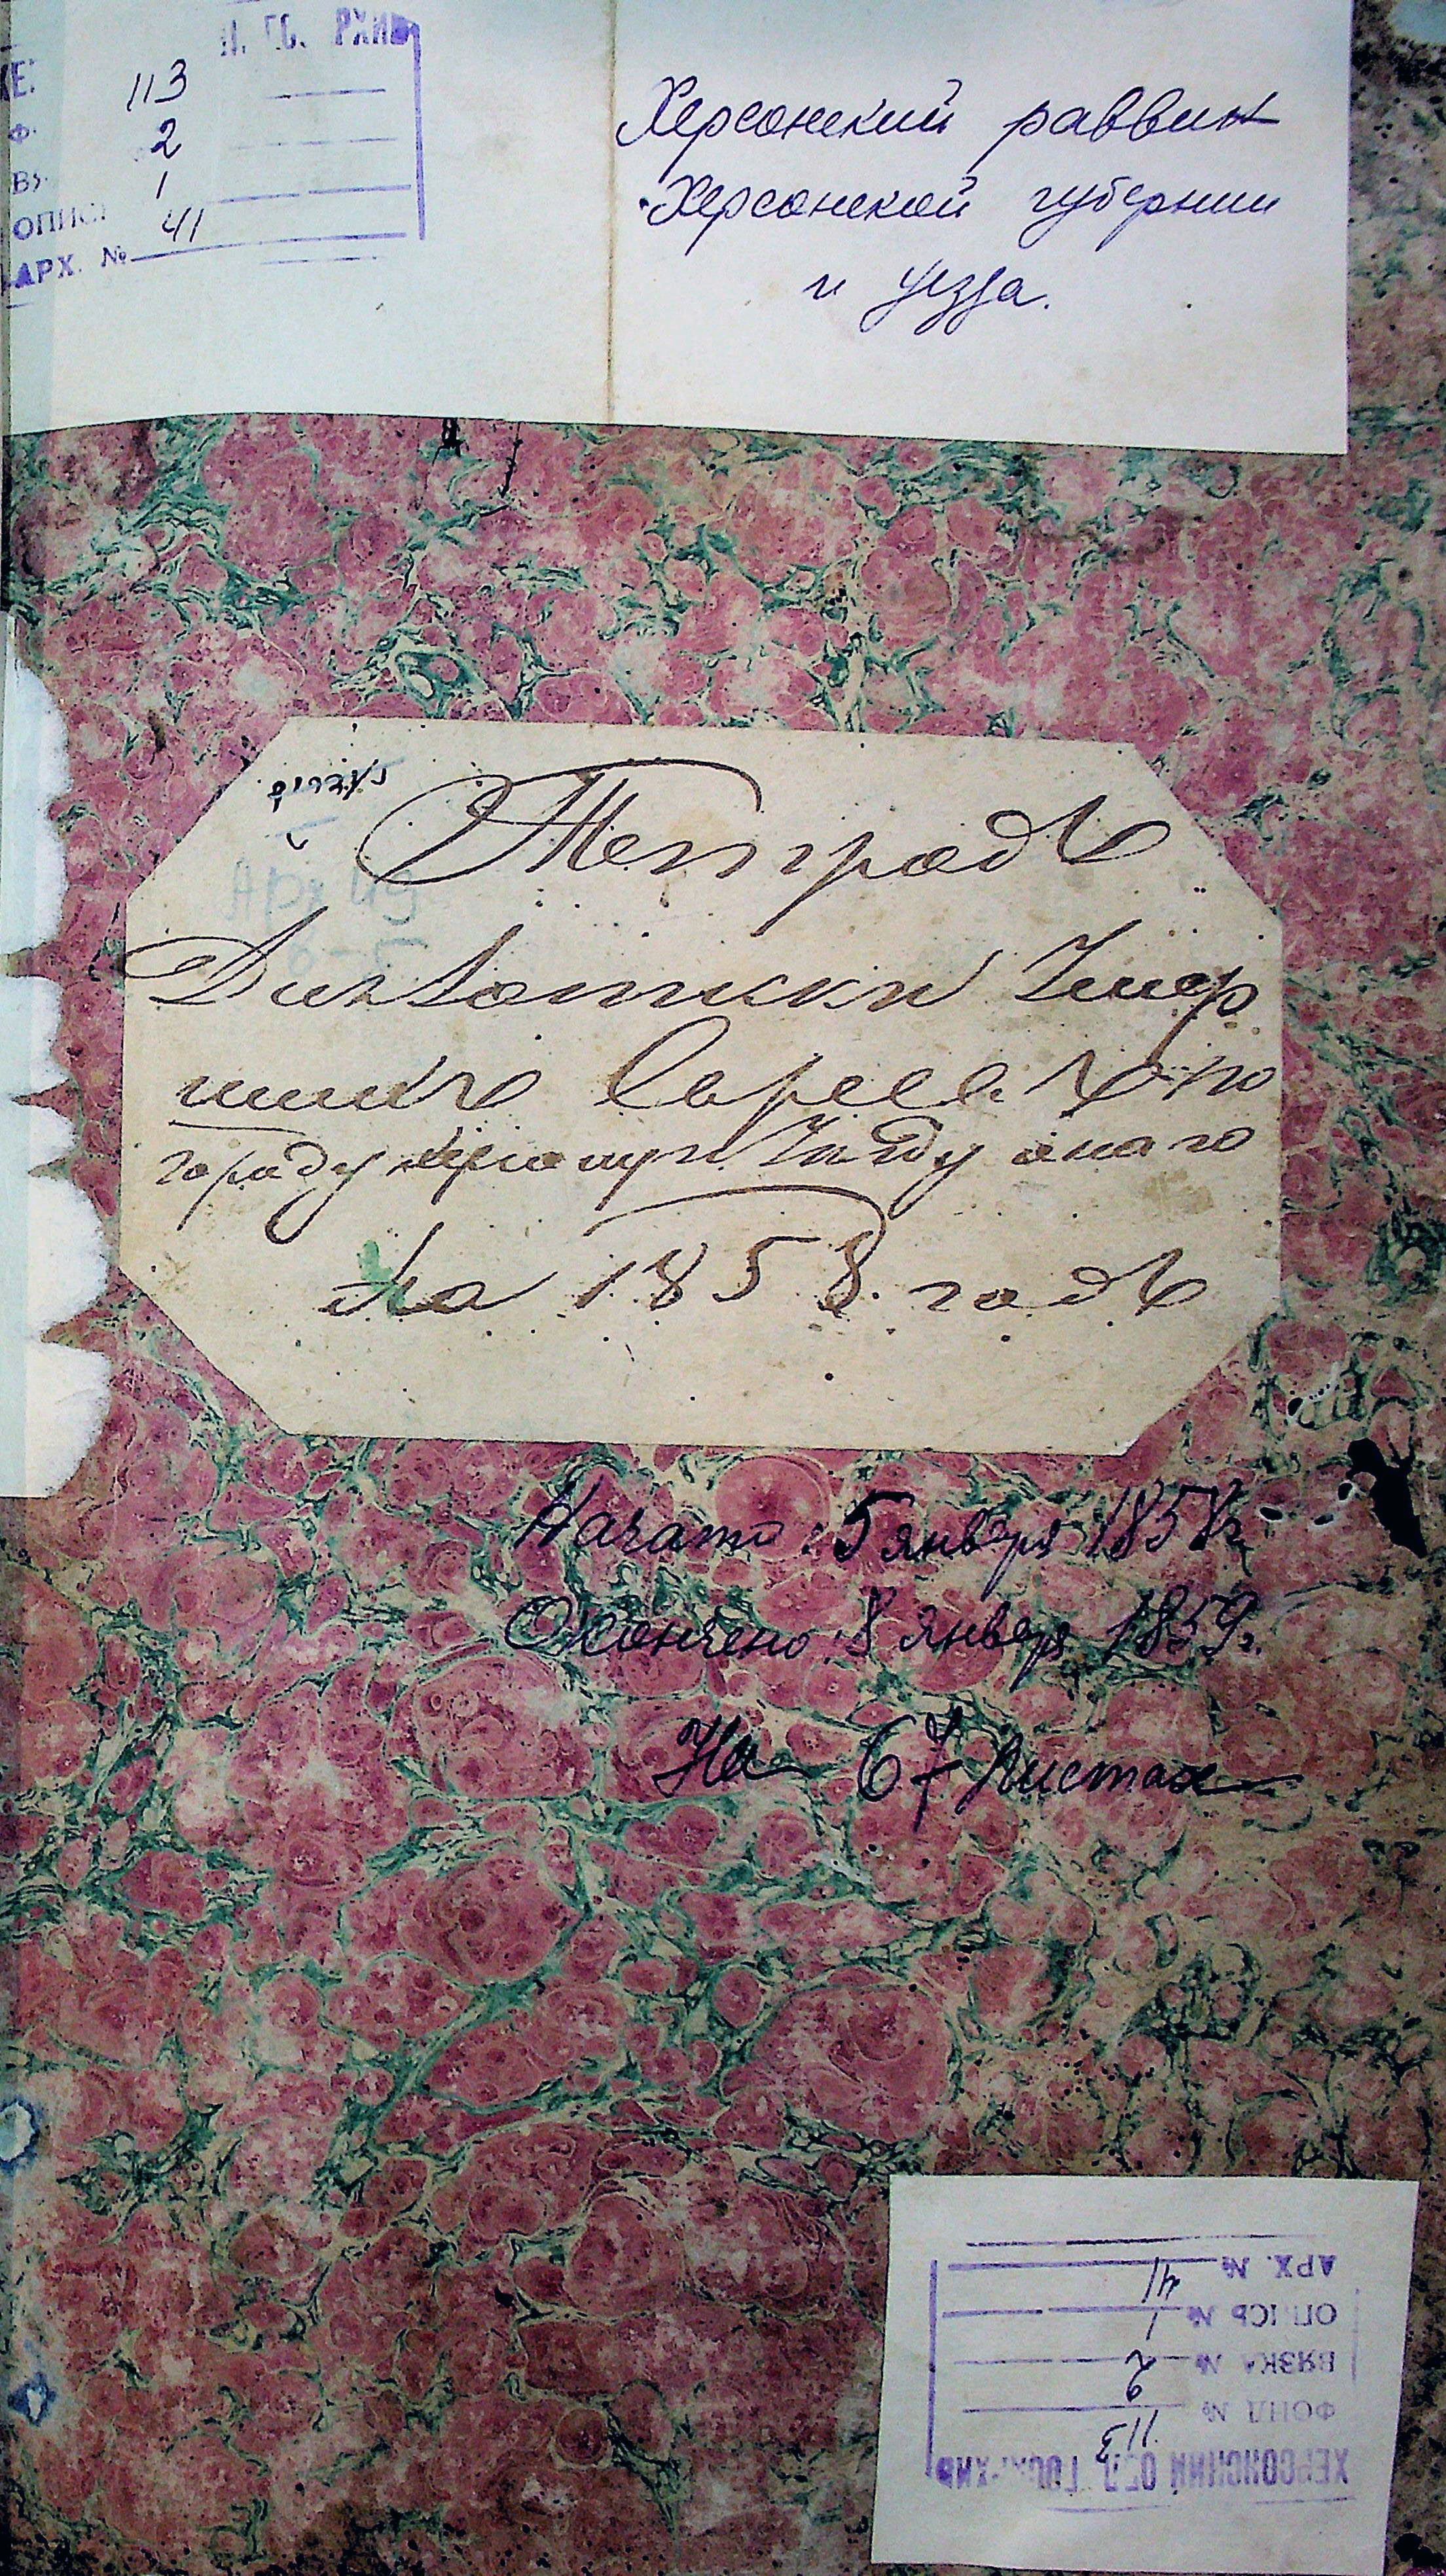 113
2
1
ОПИС
41
АРХ. №
Херсонский раввин
Херсонской губернии
и уезда.
Тетрадь
Для записки Умер
шихъ Евреевъ по
городу Херсону и Уезду онаго
На 1858 годъ
Начато: 5 января 1858 г.
Окончено: 8 января 1859 г.
На 67 листах
ХЕРСОНСКИЙ ОБЛ. ГОСАРХИВ
ФОНД № 113
ВЯЗКА № 2
ОПИСЬ № 1
АРХ. № 41